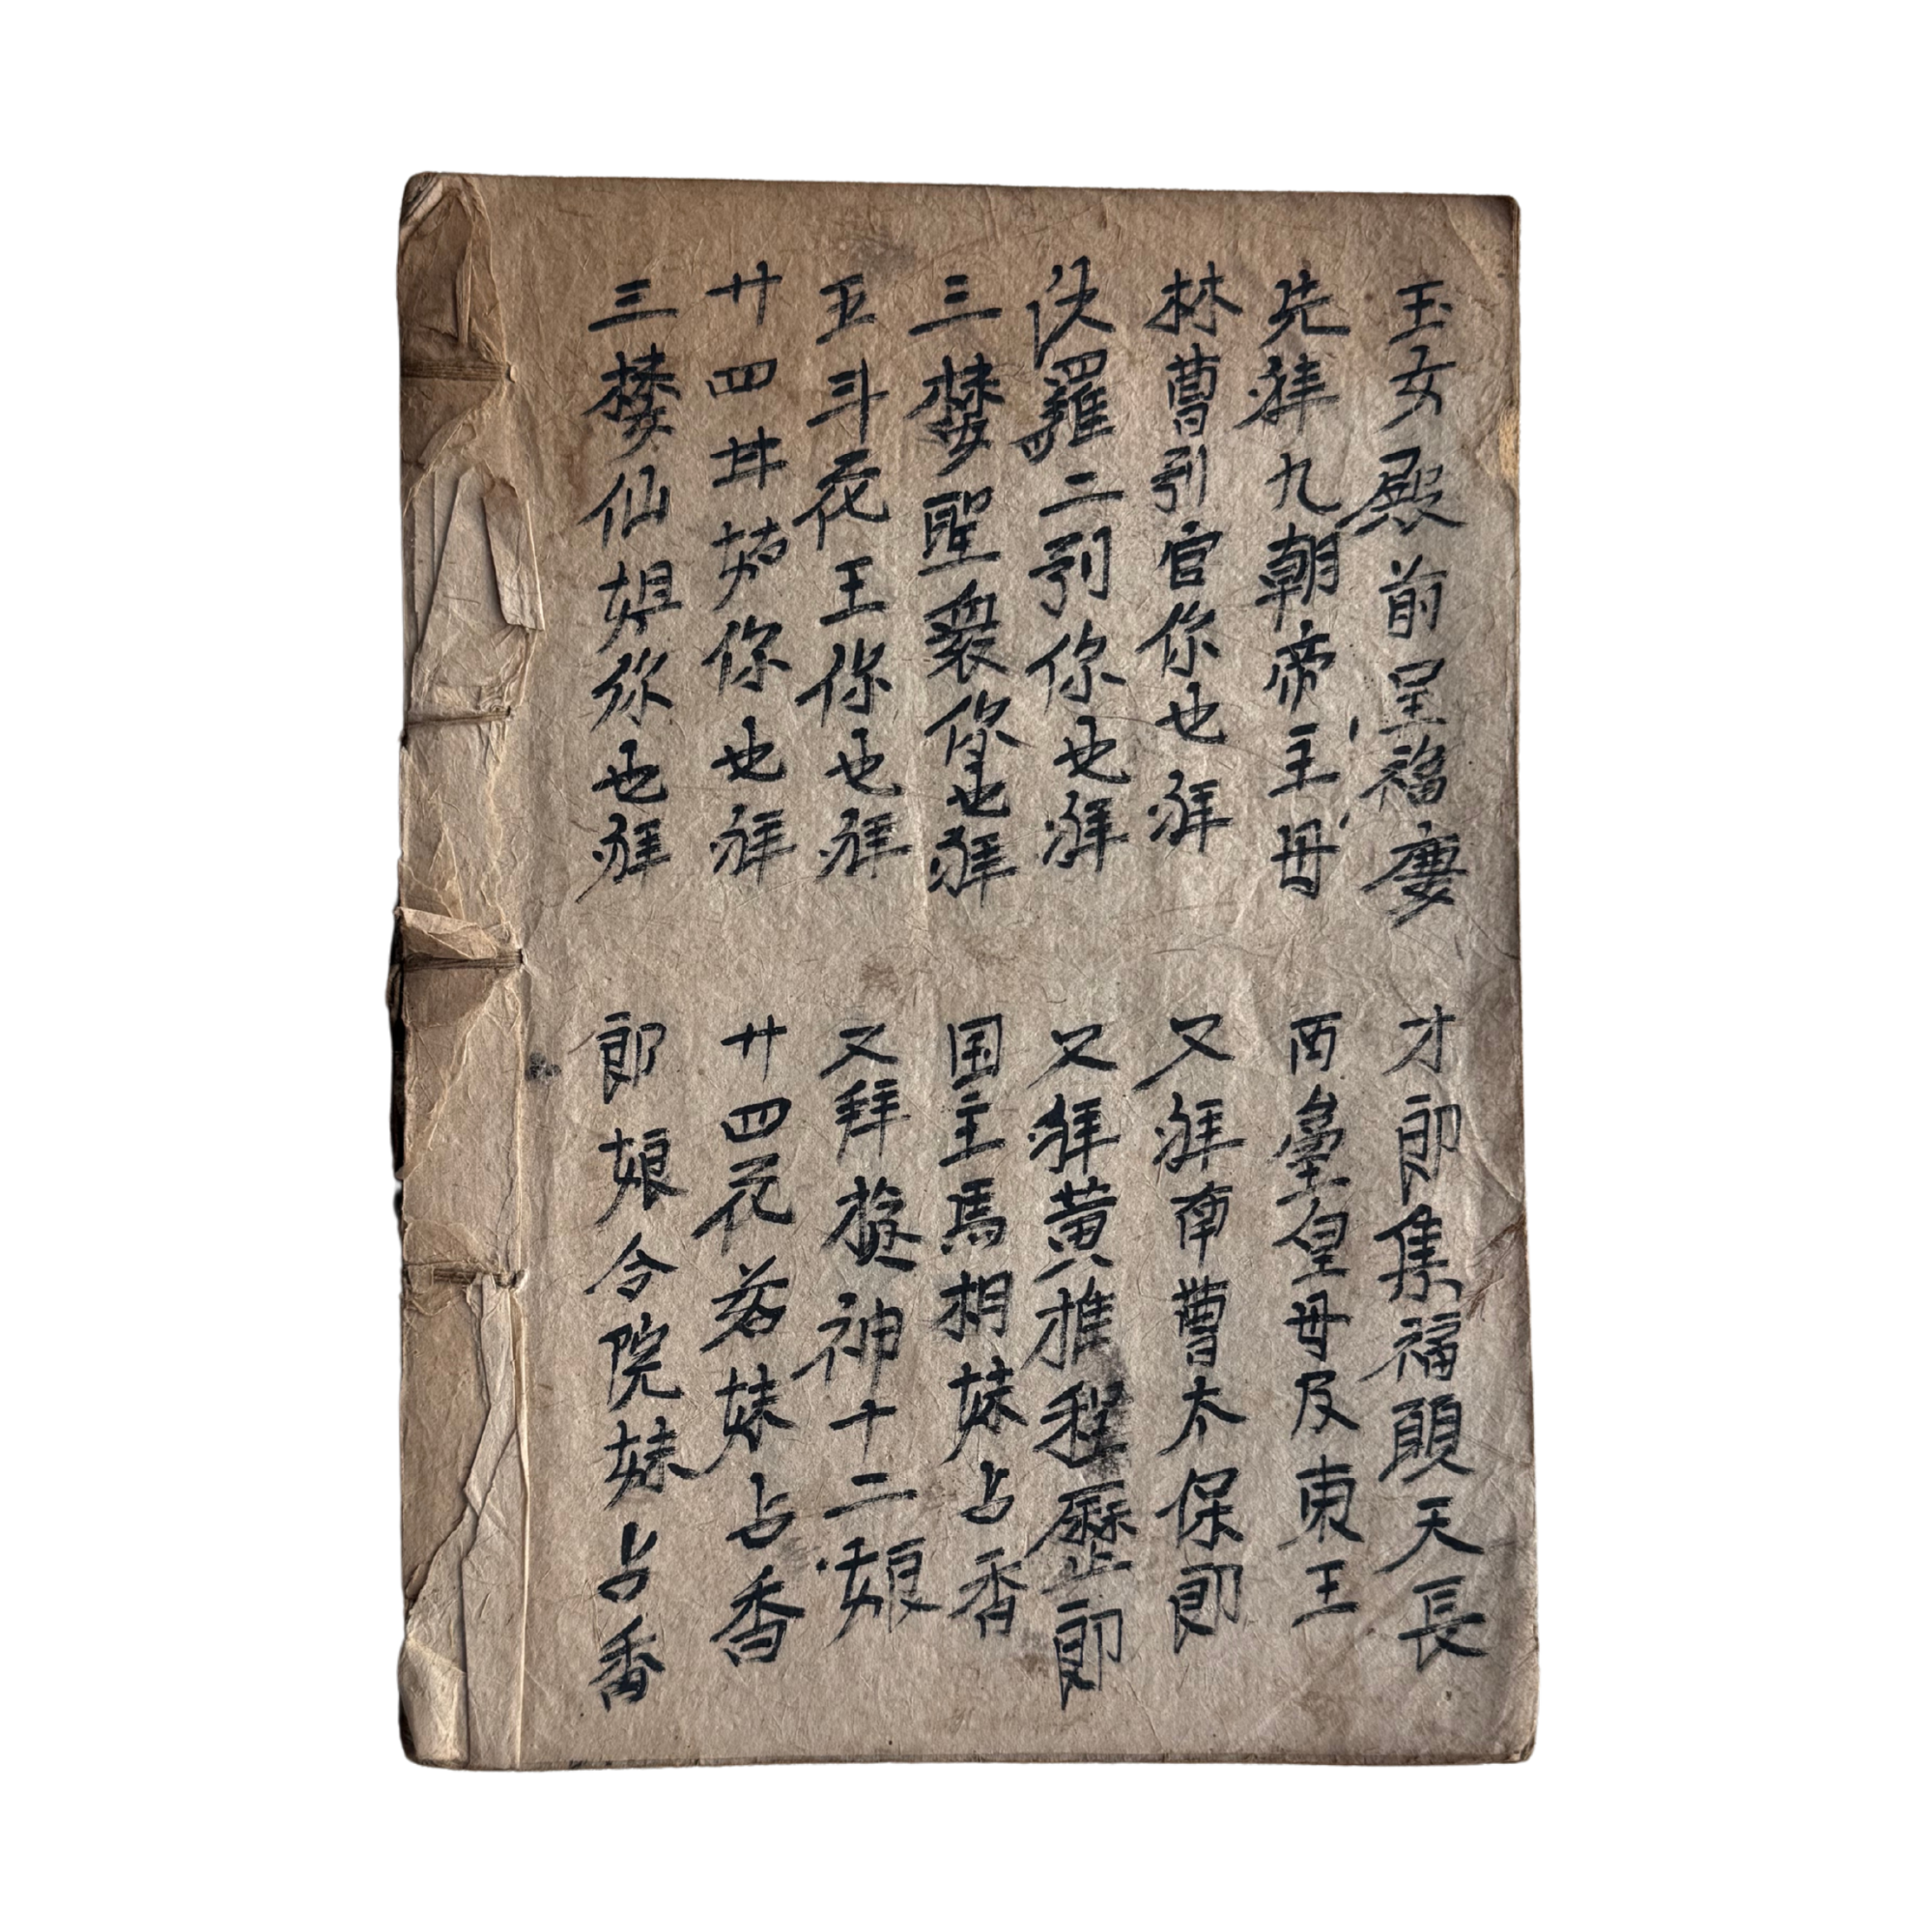 玉女殿前呈福慶
才郎集福願天長
先拜九朝帝主母
西臺皇母及東王
林曹引官你也拜
又拜南曹太保郎
伏羅二引你也拜
又拜黃推程歷郎
三婪聖衆你也拜
国主馬相妹占香
五斗花王你也拜
又拜旋神十二娘
廿四井婆你也拜
廿四花若妹占香
三婪仙姐你也拜
郎娘令院妹占香